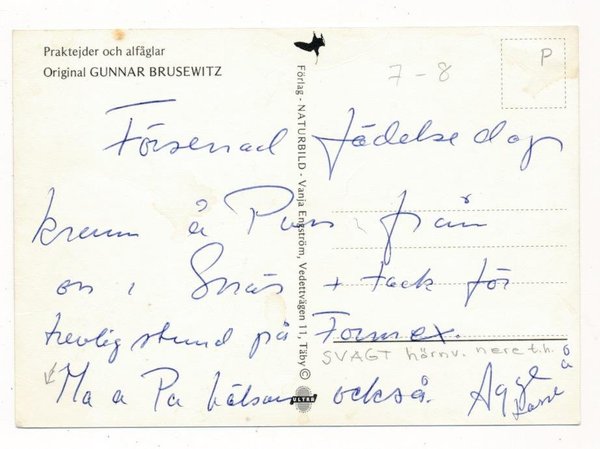 Praktejder och alfåglar
Original GUNNAR BRUSEWITZ
P
7-8
Förlag - NATURBILD - Vanja Engström, Vedettvägen 11, Täby ©
ULTRA
Försenad födelsedags
kram å Puss från
en i Snås + tack för
trevlig stund på Formex.
SVAGT hörnv. nere t.h.
Ma a Pa hälsar också.